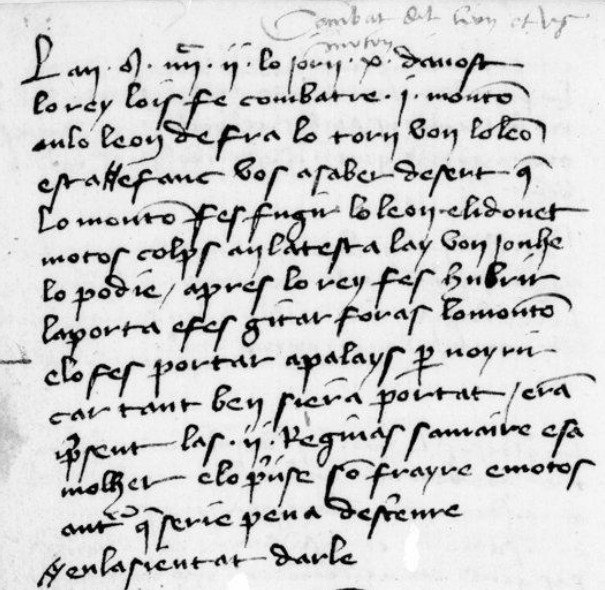 Combat del lion et ung
muton
Lan · M · IIII · ii · lo jorn · x · davost
lo rey lois fe combatre · i · monto
an lo leon de fra lo torn von loleo
esta e fauc vos asaber desert q̄
lo monto fes fugir lo leon · elidonet
motos colps an latesta lay von jonhe
lo podie / apres lo rey fes hubrir
laporta efes gitar foras lomonto
elo fes portar apalays p noyrir
car tant ben siera portat / era
p̄sent las · ii · Reginas samaire esa
molher elo p̄nse so frayre emotos
aut's q̄ serie pena descriure
enlasieutat darle